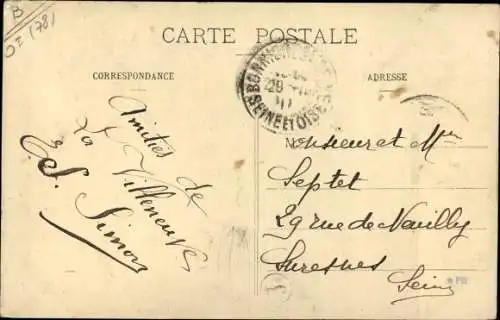 B
CARTE POSTALE
CORRESPONDANCE
ADRESSE
SEINE ET OISE
Amitiés de
La Villeneuve
E. S. Simon
Monsieur et Mme
Septet
29 rue de Neuilly
Suresnes
Seine